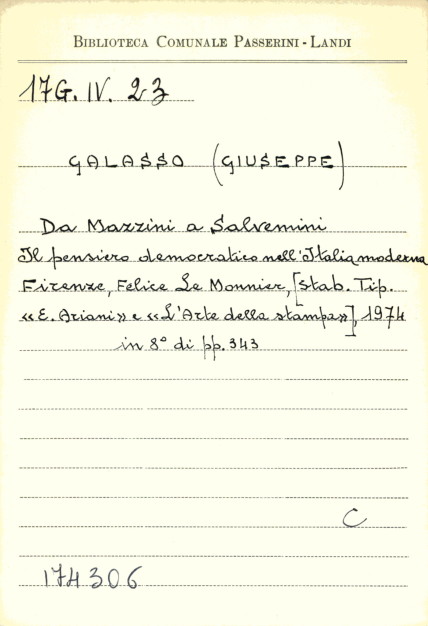 BIBLIOTECA COMUNALE PASSERINI - LANDI
17G. IV. 23
GALASSO (GIUSEPPE)
Da Mazzini a Salvemini
Il pensiero democratico nell'Italia moderna
Firenze, Felice Le Monnier, [Stab. Tip.
«E. Ariani» e «L'Arte della stampa»], 1974
in 8° di pp. 343
C
174306